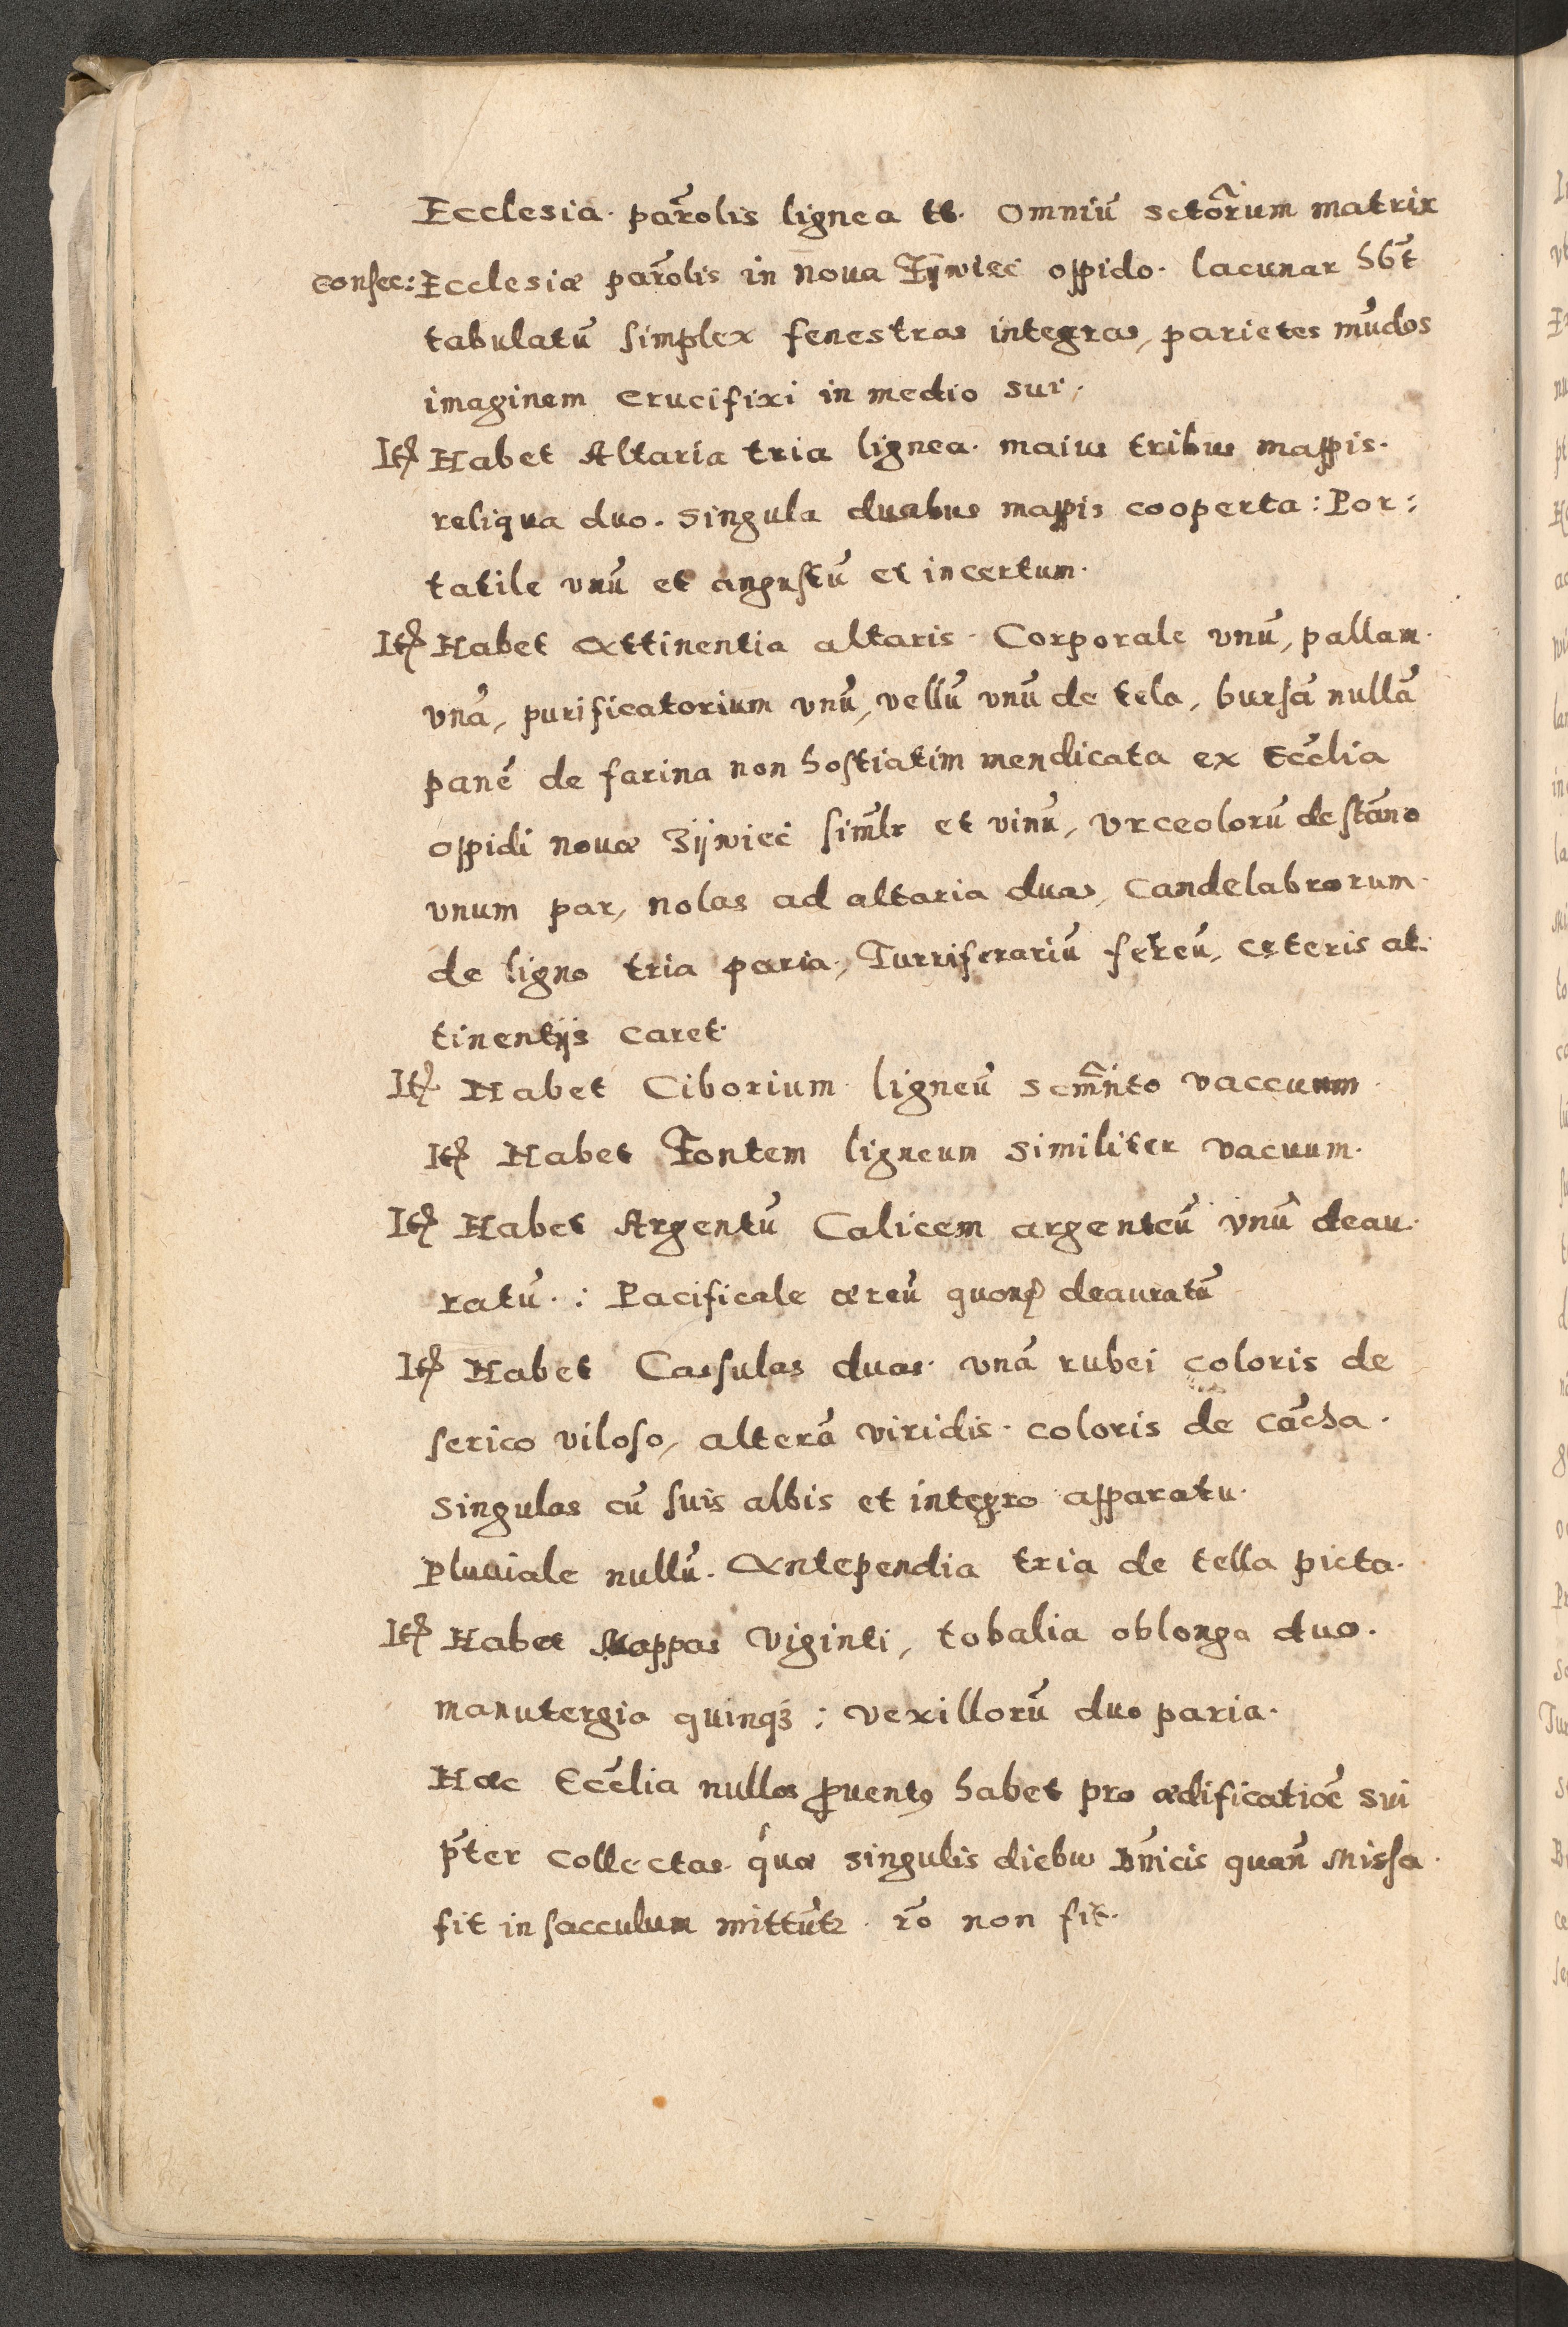 Ecclesia parōlis lignea tt. Omniū sctōrum matrix
consec: Ecclesiæ parōlis in noua Zijwiec oppido. lacunar hēt
tabulatū simplex fenestras integras, parietes mūdos
imaginem crucifixi in medio sui,
Itē Habet Altaria tria lignea. maius tribus mappis.
reliqua duo. singula duabus mappis cooperta: Por:
tatile vnū et angustū et incertum.
Itē Habet Attinentia altaris. Corporale vnū, pallam.
vnā, purificatorium vnū, vellū vnū de tela, bursā nullā
panē de farina non hostiatim mendicata ex Ecc̄lia
oppidi nouæ Zijwiec simlr et vinū, vrceolorū de stāno
vnum par, nolas ad altaria duas, candelabrorum
de ligno tria paria, Turriferariū fereū, ceteris at:
tinentijs caret.
Itē Habet Ciborium ligneū scm̄nto vaccuum.
Itē Habet Fontem ligneum similiter vacuum.
Itē Habet Argentū Calicem argenteū vnū deau:
ratū.: Pacificale æreū quonꝫ deauratū
Itē Habet Cassulas duas. vnā rubei coloris de
serico viloso, alterā viridis. coloris de cācha.
singulas cū suis albis et integro apparatu.
Pluuiale nullū. Antependia tria de tella picta.
Itē Habet Mappas viginti, tobalia oblonga duo.
manutergia quinqꝫ: vexillorū duo paria.
Hæc Ecc̄lia nullos ꝓuentꝰ habet pro ædificatiōē sui
p̄ter collectas. quæ singulis diebus Dn̄icis quan̄ Missa.
fit in sacculum mittūtr. rō non fit.